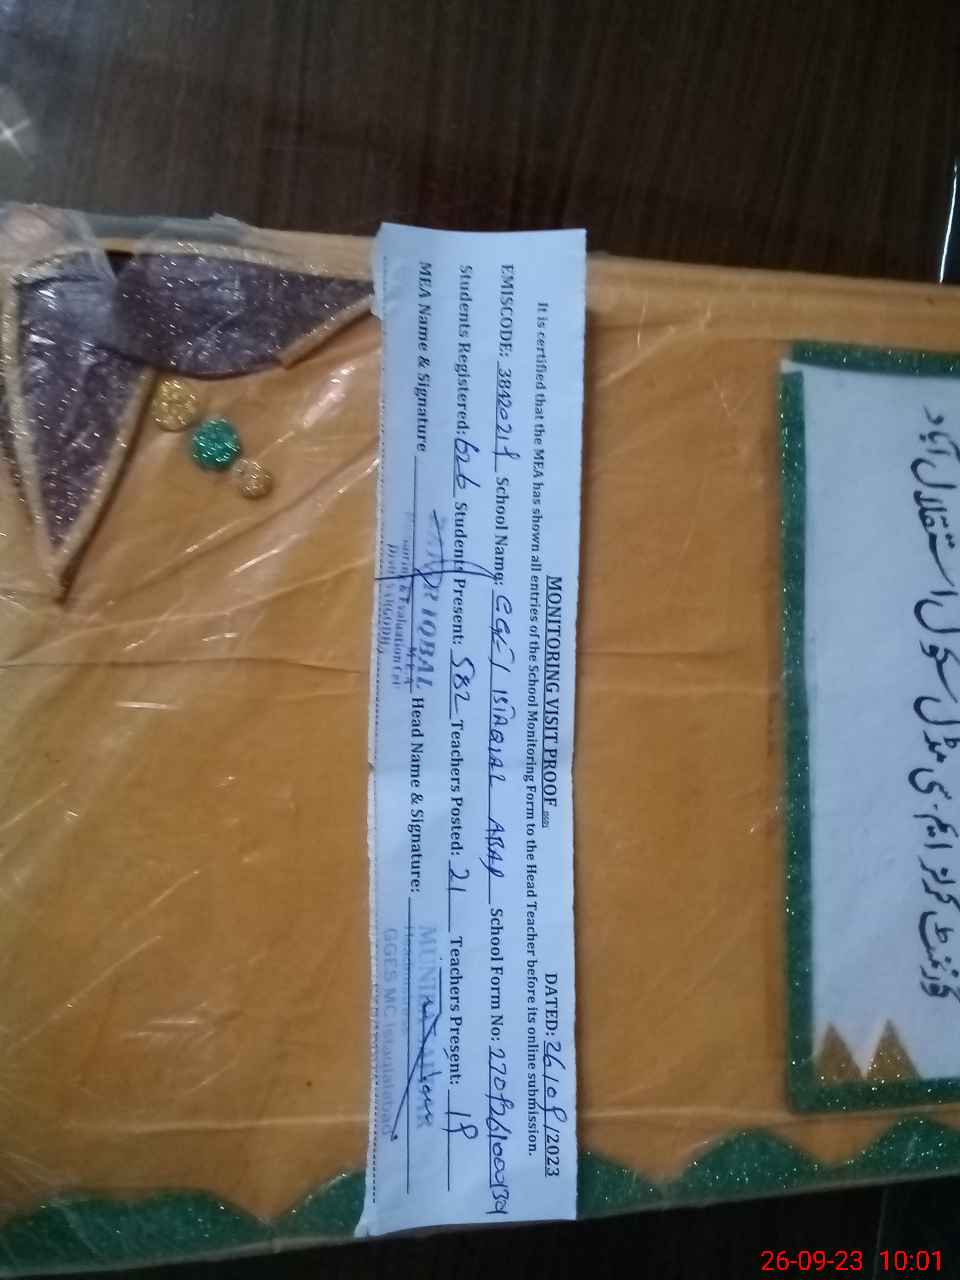 MONITORING VISIT PROOF DATED: 26/09/2023
It is certified that the MEA has shown all entries of the School Monitoring Form to the Head Teacher before its online submission.
EMISCODE: 38420219 School Name: GGES ISTAQLAL ABAD School Form No:
Students Registered: 626 Students Present: 582 Teachers Posted: 21 Teachers Present: 19
MEA Name & Signature IQBAL Head Name & Signature:
M E A
Monitoring & Evaluation Cell
Distt. SARGODHA
Headmistress
GGES MC Istaqlalabad
گورنمنٹ گرلز ایم۔سی مڈل سکول استقلال آباد
26-09-23 10:01